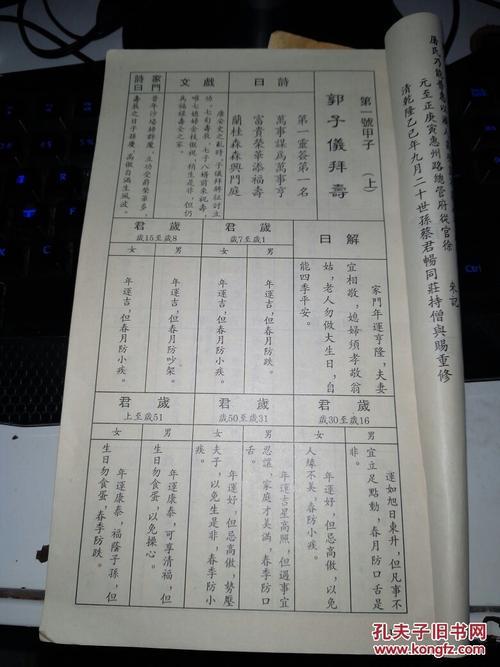 元至正庚寅惠州路總管府從官徐
朱記
清乾隆乙巳年九月二十世孫蔡君暢同莊持僧與賜重修
第一號甲子
(上)
郭子儀拜壽
詩曰
第一靈簽第一名
萬事謀為萬事亨
富貴榮華添福壽
蘭桂森森興門庭
戲文
唐安史之亂時,子儀拜帥征討立
功,七旬壽辰,七子八婿前來祝壽,
唯七媳婦金枝傲視,稍生是非,但仍
為福祿壽全之家。
家門詩曰
昔年沙場將群魔,立功受爵榮華多,
壽辰之日子孫慶,高傲自滿生風波。
解曰
家門年運亨隆,夫妻
宜相敬,媳婦須孝敬翁
姑,老人勿做大生日,自
能四季平安。
君歲
歲7至歲1
男
年運吉,但春月防跌。
女
年運吉,但春月防小疾。
君歲
歲15至歲8
男
年運吉,但春月防吵架。
女
年運吉,但春月防小疾。
君歲
歲30至歲16
男
運如旭日東升,但凡事不
宜立足點動,春月防口舌是
非。
女
年運好,但忌高傲,以免
人緣不美,春防小疾。
君歲
歲50至歲31
男
年運吉星高照,但遇事宜
忍讓,家庭才美滿,春季防口
舌。
女
年運好,但忌高傲,勢壓
夫子,以免生是非,春季防小
疾。
君歲
上至歲51
男
年運康泰,可享清福,但
生日勿食蛋,以免操心。
女
年運康泰,福蔭子孫,但
生日勿食蛋,春季防跌。
孔夫子旧书网
www.kongfz.com